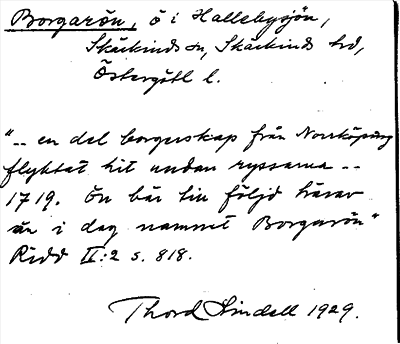 Borgarön, ö i Hallebysjön,
Skärkinds sn, Skärkinds hd,
Östergötl l.
"-- en del borgerskap från Norrköping
flyktat hit undan ryssarna --
1719. Ön bär till följd härav
än i dag namnet Borgarön"
Ridd II:2 s. 818.
Thord Lindell 1929.